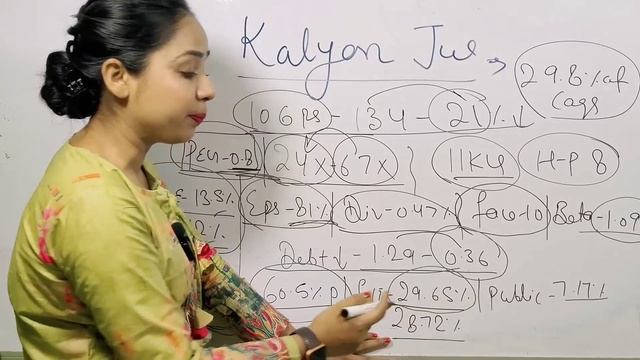 Kalyan Jue
29.8% af cags
106 ps - 134 - 21% ↓
PEG-0.8 24x-67x 11K4 H-P 8
13.5% Eps-81% Div-0.47% Face-10 Beta-1.09
2%
Debt↓ - 1.29 - 0.36
60.5% P 29.65% Public-7.17%
28.72%